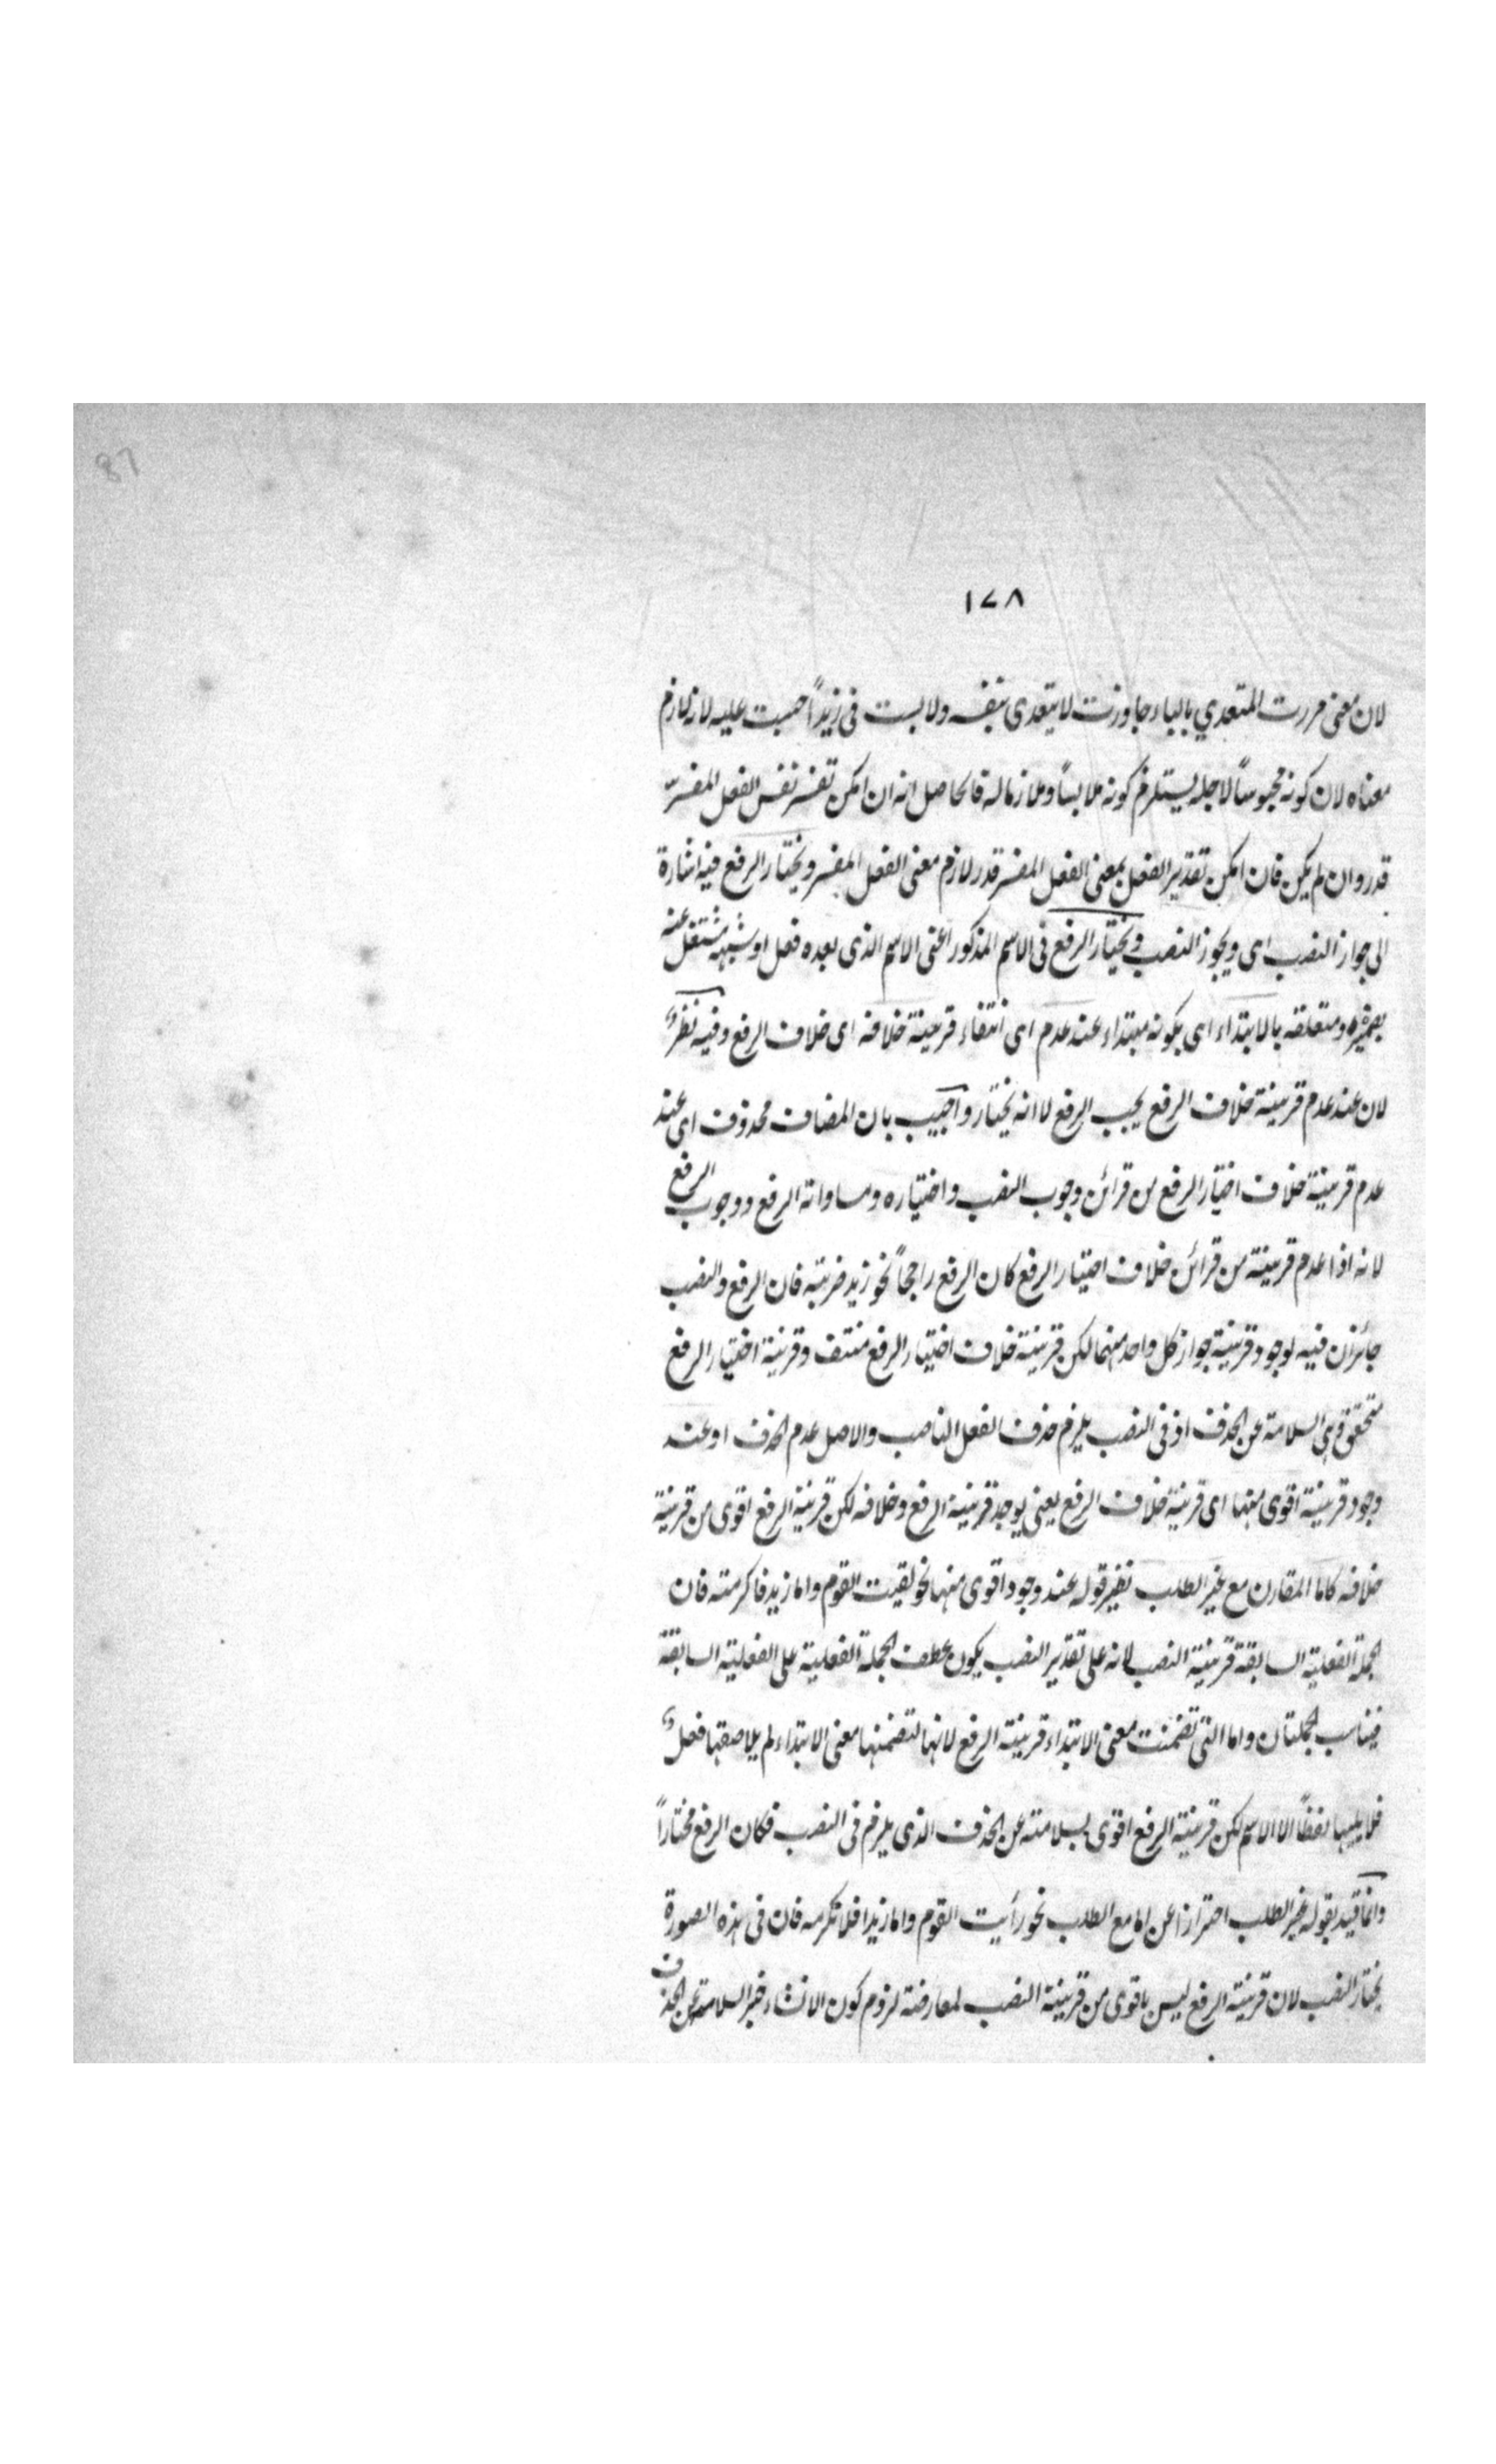 87
١٧٨
لان معنى مررت المتعدي بالباء جاوزت لا يتعدى بنفسه ولابست فى زيداً حبست عليه لانه لازم
معناه لان كونه محبوساً لاجله يستلزم كونه ملابساً وملازما له فالحاصل انه ان امكن تفسر نفس الفعل المفسرّ
قدر وان لم يكن فان امكن تقدير الفعل بمعنى الفعل المفسر قدر لازم معنى الفعل المفسر ويختار الرفع فيه اشارة
الى جواز النصب اى ويجوز النصب ويختار الرفع فى الاسم المذكور اعنى الاسم الذى بعده فعل او شبهه مشتغل عنه
بضميره ومتعلقه بالابتداء اى بكونه مبتداء عند عدم اى انتفاء قرينة خلافه اى خلاف الرفع وفيه نظرٌ
لان عند عدم قرينة خلاف الرفع يجب الرفع لا انه يختار واجيب بان المضاف محذوف اى عند
عدم قرينة خلاف اختيار الرفع من قرائن وجوب النصب واختياره ومساواته الرفع ووجوب الرفع
لانه اذا عدم قرينة من قرائن خلاف اختيار الرفع كان الرفع راجحاً نحو زيد ضربته فان الرفع والنصب
جائزان فيه لوجود قرينة جواز كل واحد منهما لكن قرينة خلاف اختيار الرفع منتف وقرينة اختيار الرفع
متحقق وهى السلامة عن الحذف اذ فى النصب يلزم حذف الفعل الناصب والاصل عدم الحذف او عند
وجود قرينة اقوى منها اى قرينة خلاف الرفع يعنى يوجد قرينة الرفع وخلافه لكن قرينة الرفع اقوى من قرينة
خلافه كاما المقارن مع غير الطلب نظير قوله عند وجود اقوى منها نحو لقيت القوم واما زيد فاكرمته فان
الجملة الفعلية السابقة قرينة النصب لانه على تقدير النصب يكون عطف الجملة الفعلية على الفعلية السابقة
فيناسب الجملتان واما التى تضمنت معنى الابتداء قرينة الرفع لانها لتضمنها معنى الابتداء لم يلاصقها فعلٌ
فلا يليها لفظاً الا الاسم لكن قرينة الرفع اقوى بسلامته عن الحذف الذى يلزم فى النصب فكان الرفع مختاراً
وانما قيد بقوله غير الطلب احترازا عن اما مع الطلب نحو رأيت القوم واما زيدا فلا تكرمه فان فى هذه الصورة
يختار النصب لان قرينة الرفع ليس باقوى من قرينة النصب لمعارضة لزوم كون الانشاء خبر السلامة عن الحذف